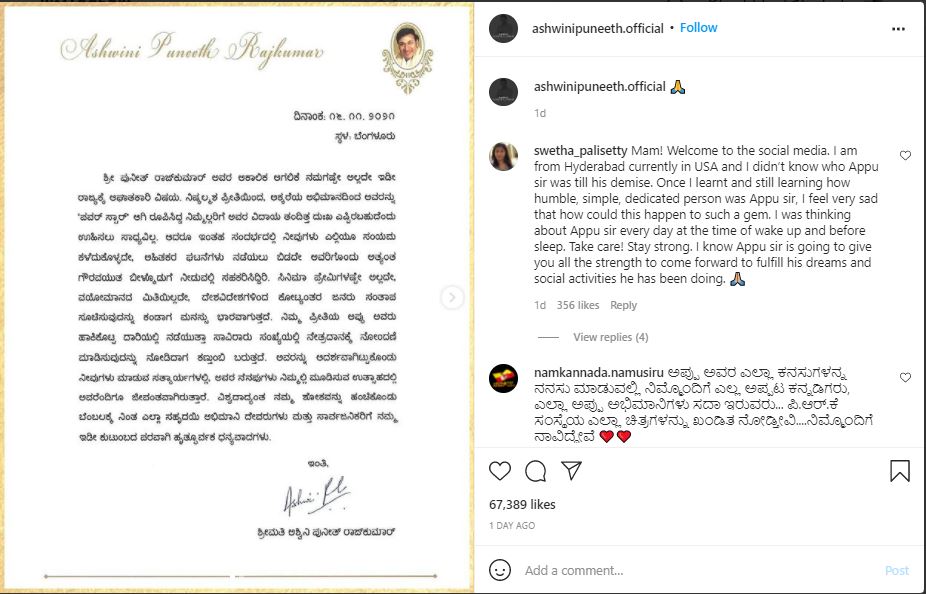 Ashwini Puneeth Rajkumar
ದಿನಾಂಕ: ೧೬. ೧೧. ೨೦೨೧
ಸ್ಥಳ: ಬೆಂಗಳೂರು
ಶ್ರೀ ಪುನೀತ್ ರಾಜ್‌ಕುಮಾರ್ ಅವರ ಅಕಾಲಿಕ ಅಗಲಿಕೆ ನಮಗಷ್ಟೇ ಅಲ್ಲದೇ ಇಡೀ
ರಾಜ್ಯಕ್ಕೆ ಆಘಾತಕಾರಿ ವಿಷಯ. ನಿಷ್ಕಲ್ಮಶ ಪ್ರೀತಿಯಿಂದ, ಅಕ್ಕರೆಯ ಅಭಿಮಾನದಿಂದ ಅವರನ್ನು
'ಪವರ್ ಸ್ಟಾರ್' ಆಗಿ ರೂಪಿಸಿದ್ದ ನಿಮ್ಮೆಲ್ಲರಿಗೆ ಅವರ ವಿದಾಯ ತಂದಿತ್ತ ದುಃಖ ಎಷ್ಟಿರಬಹುದೆಂದು
ಊಹಿಸಲು ಸಾಧ್ಯವಿಲ್ಲ. ಆದರೂ ಇಂತಹ ಸಂದರ್ಭದಲ್ಲಿ ನೀವುಗಳು ಎಲ್ಲಿಯೂ ಸಂಯಮ
ಕಳೆದುಕೊಳ್ಳದೇ, ಅಹಿತಕರ ಘಟನೆಗಳು ನಡೆಯಲು ಬಿಡದೇ ಅವರಿಗೊಂದು ಅತ್ಯಂತ
ಗೌರವಯುತ ಬೀಳ್ಕೊಡುಗೆ ನೀಡುವಲ್ಲಿ ಸಹಕರಿಸಿದ್ದೀರಿ. ಸಿನಿಮಾ ಪ್ರೇಮಿಗಳಷ್ಟೇ ಅಲ್ಲದೇ,
ವಯೋಮಾನದ ಮಿತಿಯಿಲ್ಲದೇ, ದೇಶವಿದೇಶಗಳಿಂದ ಕೋಟ್ಯಂತರ ಜನರು ಸಂತಾಪ
ಸೂಚಿಸುವುದನ್ನು ಕಂಡಾಗ ಮನಸ್ಸು ಭಾರವಾಗುತ್ತದೆ. ನಿಮ್ಮ ಪ್ರೀತಿಯ ಅಪ್ಪು ಅವರು
ಹಾಕಿಕೊಟ್ಟ ದಾರಿಯಲ್ಲಿ ನಡೆಯುತ್ತಾ ಸಾವಿರಾರು ಸಂಖ್ಯೆಯಲ್ಲಿ ನೇತ್ರದಾನಕ್ಕೆ ನೋಂದಣಿ
ಮಾಡಿಸುವುದನ್ನು ನೋಡಿದಾಗ ಕಣ್ತುಂಬಿ ಬರುತ್ತದೆ. ಅವರನ್ನು ಆದರ್ಶವಾಗಿಟ್ಟುಕೊಂಡು
ನೀವುಗಳು ಮಾಡುವ ಸತ್ಕಾರ್ಯಗಳಲ್ಲಿ, ಅವರ ನೆನಪುಗಳು ನಿಮ್ಮಲ್ಲಿ ಮೂಡಿಸುವ ಉತ್ಸಾಹದಲ್ಲಿ
ಅವರೆಂದಿಗೂ ಜೀವಂತವಾಗಿರುತ್ತಾರೆ. ವಿಶ್ವದಾದ್ಯಂತ ನಮ್ಮ ಶೋಕವನ್ನು ಹಂಚಿಕೊಂಡು
ಬೆಂಬಲಕ್ಕೆ ನಿಂತ ಎಲ್ಲಾ ಸಹೃದಯಿ ಅಭಿಮಾನಿ ದೇವರುಗಳು ಮತ್ತು ಸಾರ್ವಜನಿಕರಿಗೆ ನಮ್ಮ
ಇಡೀ ಕುಟುಂಬದ ಪರವಾಗಿ ಹೃತ್ಪೂರ್ವಕ ಧನ್ಯವಾದಗಳು.
ಇಂತಿ,
ಶ್ರೀಮತಿ ಅಶ್ವಿನಿ ಪುನೀತ್ ರಾಜ್‌ಕುಮಾರ್
ashwinipuneeth.official • Follow
ashwinipuneeth.official 🙏
1d
swetha_palisetty Mam! Welcome to the social media. I am
from Hyderabad currently in USA and I didn't know who Appu
sir was till his demise. Once I learnt and still learning how
humble, simple, dedicated person was Appu sir, I feel very sad
that how could this happen to such a gem. I was thinking
about Appu sir every day at the time of wake up and before
sleep. Take care! Stay strong. I know Appu sir is going to give
you all the strength to come forward to fulfill his dreams and
social activities he has been doing. 🙏
1d 356 likes Reply
View replies (4)
namkannada.namusiru ಅಪ್ಪು ಅವರ ಎಲ್ಲಾ ಕನಸುಗಳನ್ನ
ನನಸು ಮಾಡುವಲ್ಲಿ ನಿಮ್ಮೊಂದಿಗೆ ಎಲ್ಲ ಅಪ್ಪಟ ಕನ್ನಡಿಗರು,
ಎಲ್ಲಾ ಅಪ್ಪು ಅಭಿಮಾನಿಗಳು ಸದಾ ಇರುವರು... ಪಿ.ಆರ್.ಕೆ
ಸಂಸ್ಥೆಯ ಎಲ್ಲಾ ಚಿತ್ರಗಳನ್ನು ಖಂಡಿತ ನೋಡ್ತೀವಿ....ನಿಮ್ಮೊಂದಿಗೆ
ನಾವಿದ್ದೇವೆ ❤️❤️
67,389 likes
1 DAY AGO
Add a comment...
Post